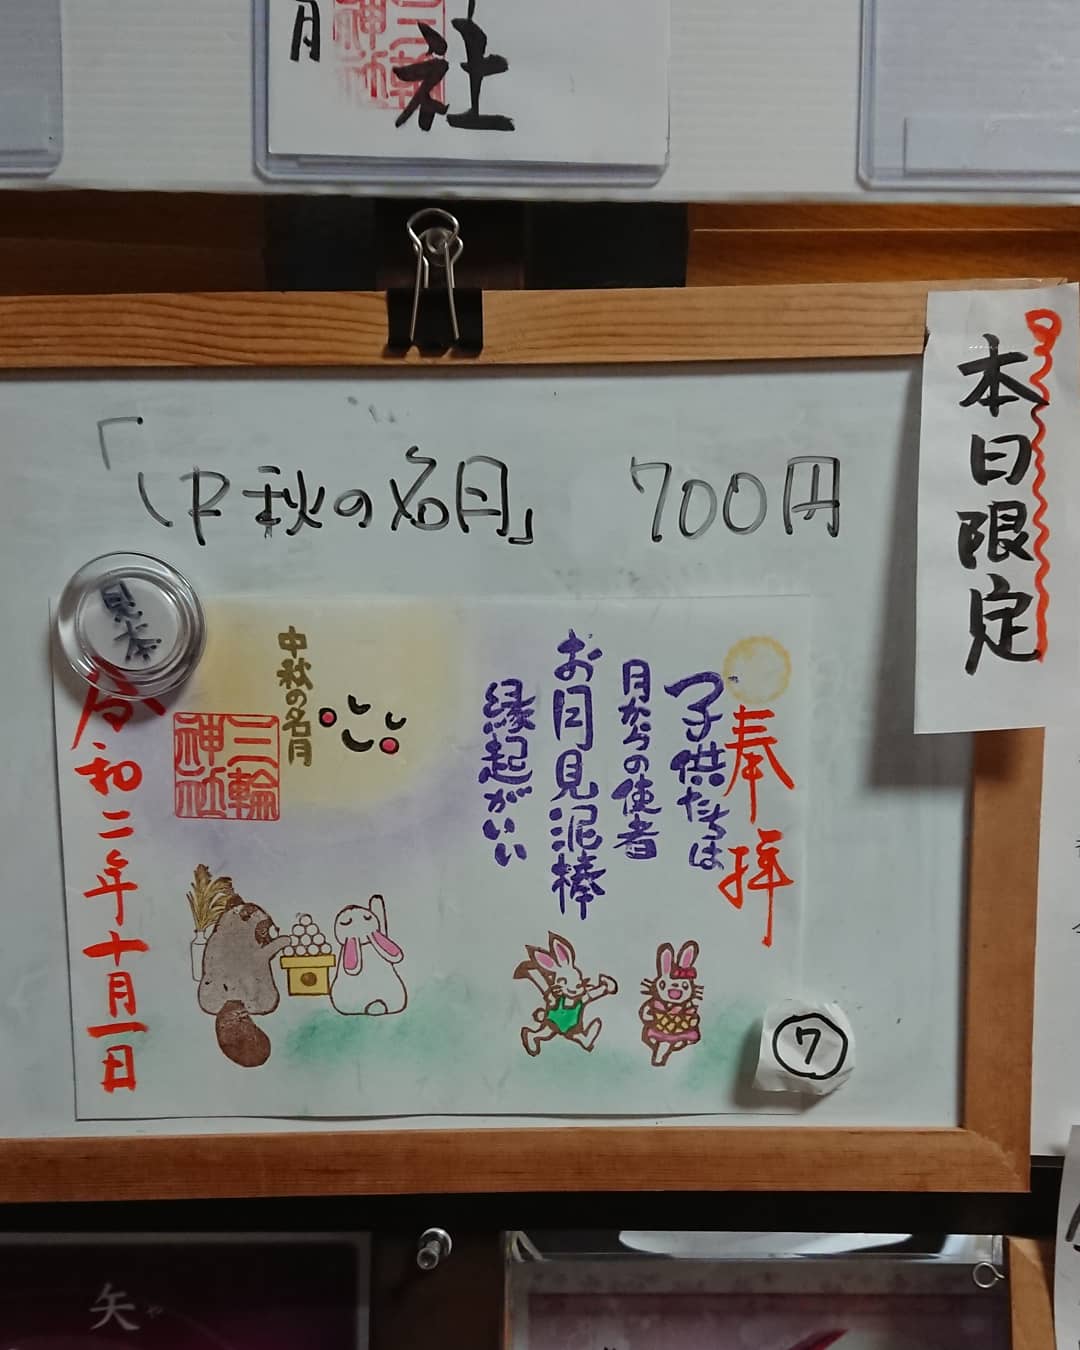 月
社
三輪
神社
本日限定
「中秋の名月」 700円
見本
奉拝
子供たちは
月からの使者
お月見泥棒
縁起がいい
中秋の名月
三輪
神社
令和二年十月一日
7
矢
や